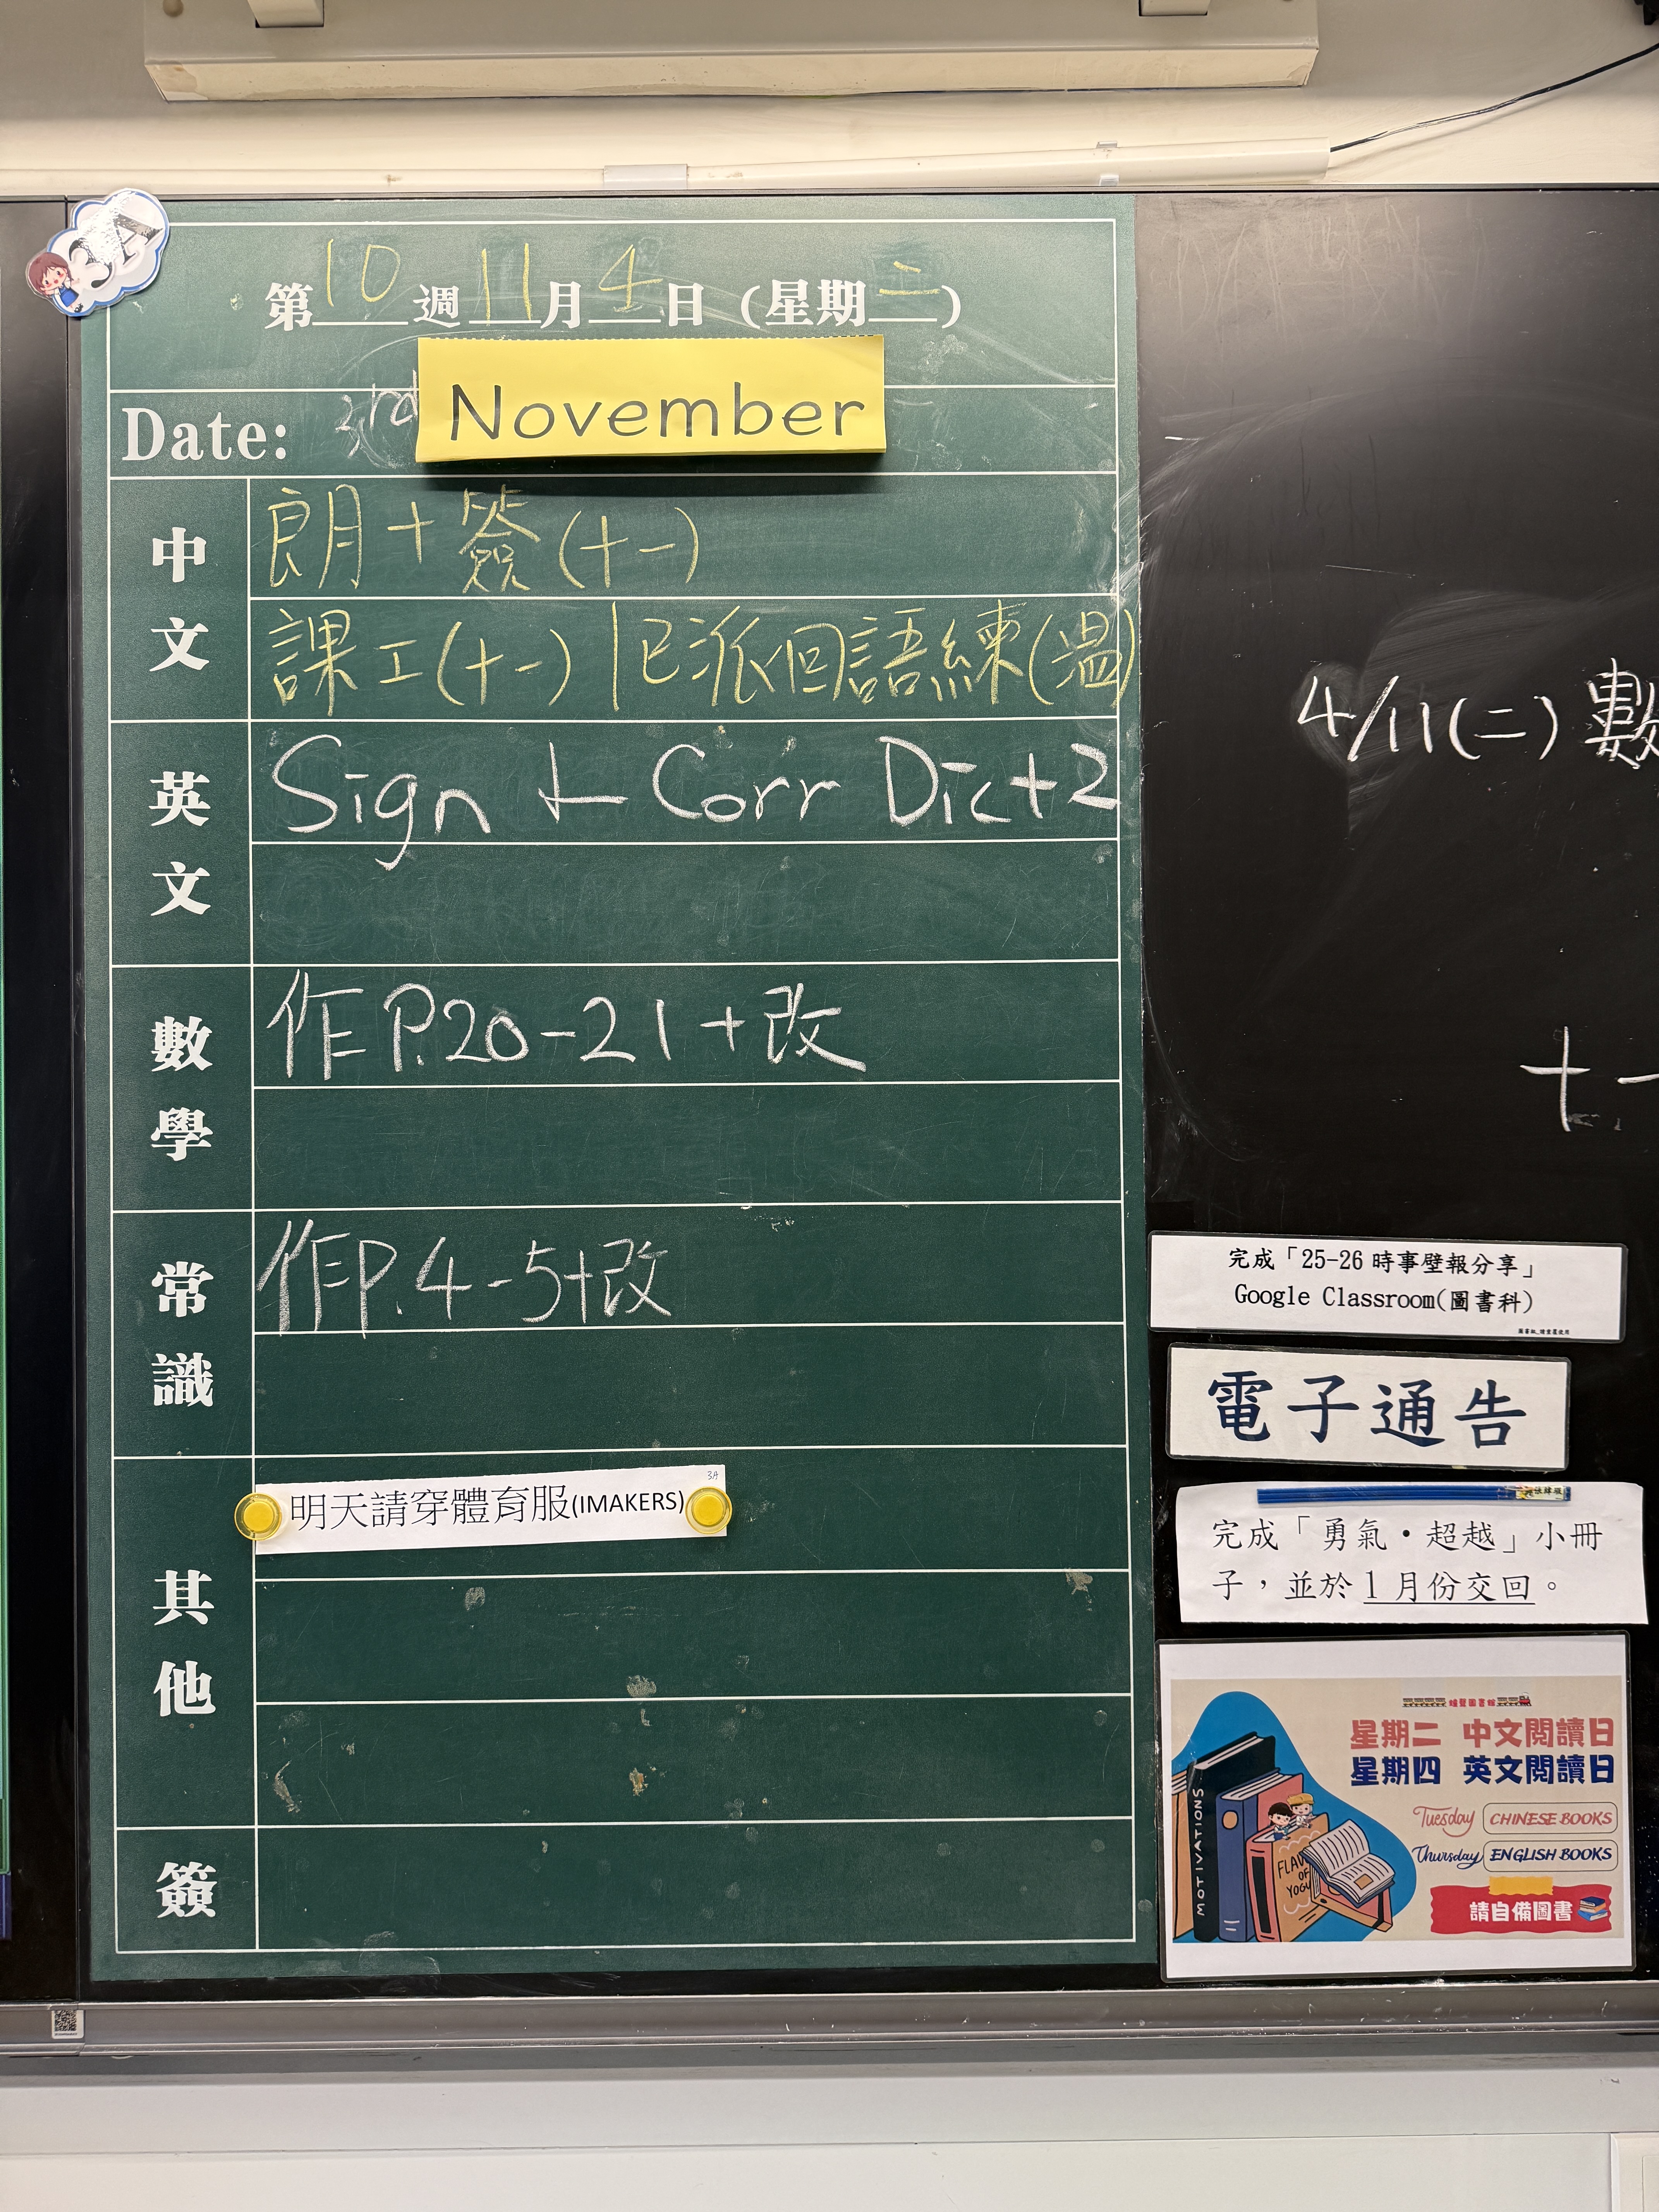 3A
第10週11月4日(星期二)
Date: 3rd November
中文
朗+簽(十一)
課工(十一) | 已派回語練(溫)
英文
Sign + Corr Dict 2
數學
作 P.20-21+改
常識
作P.4-5+改
其他
3A
明天請穿體育服(IMAKERS)
簽
4/11(二)數
十一
完成「25-26 時事壁報分享」
Google Classroom(圖書科)
電子通告
完成「勇氣•超越」小冊
子，並於1月份交回。
星期二 中文閱讀日
星期四 英文閱讀日
Tuesday CHINESE BOOKS
Thursday ENGLISH BOOKS
請自備圖書
MOTIVATIONS
OF